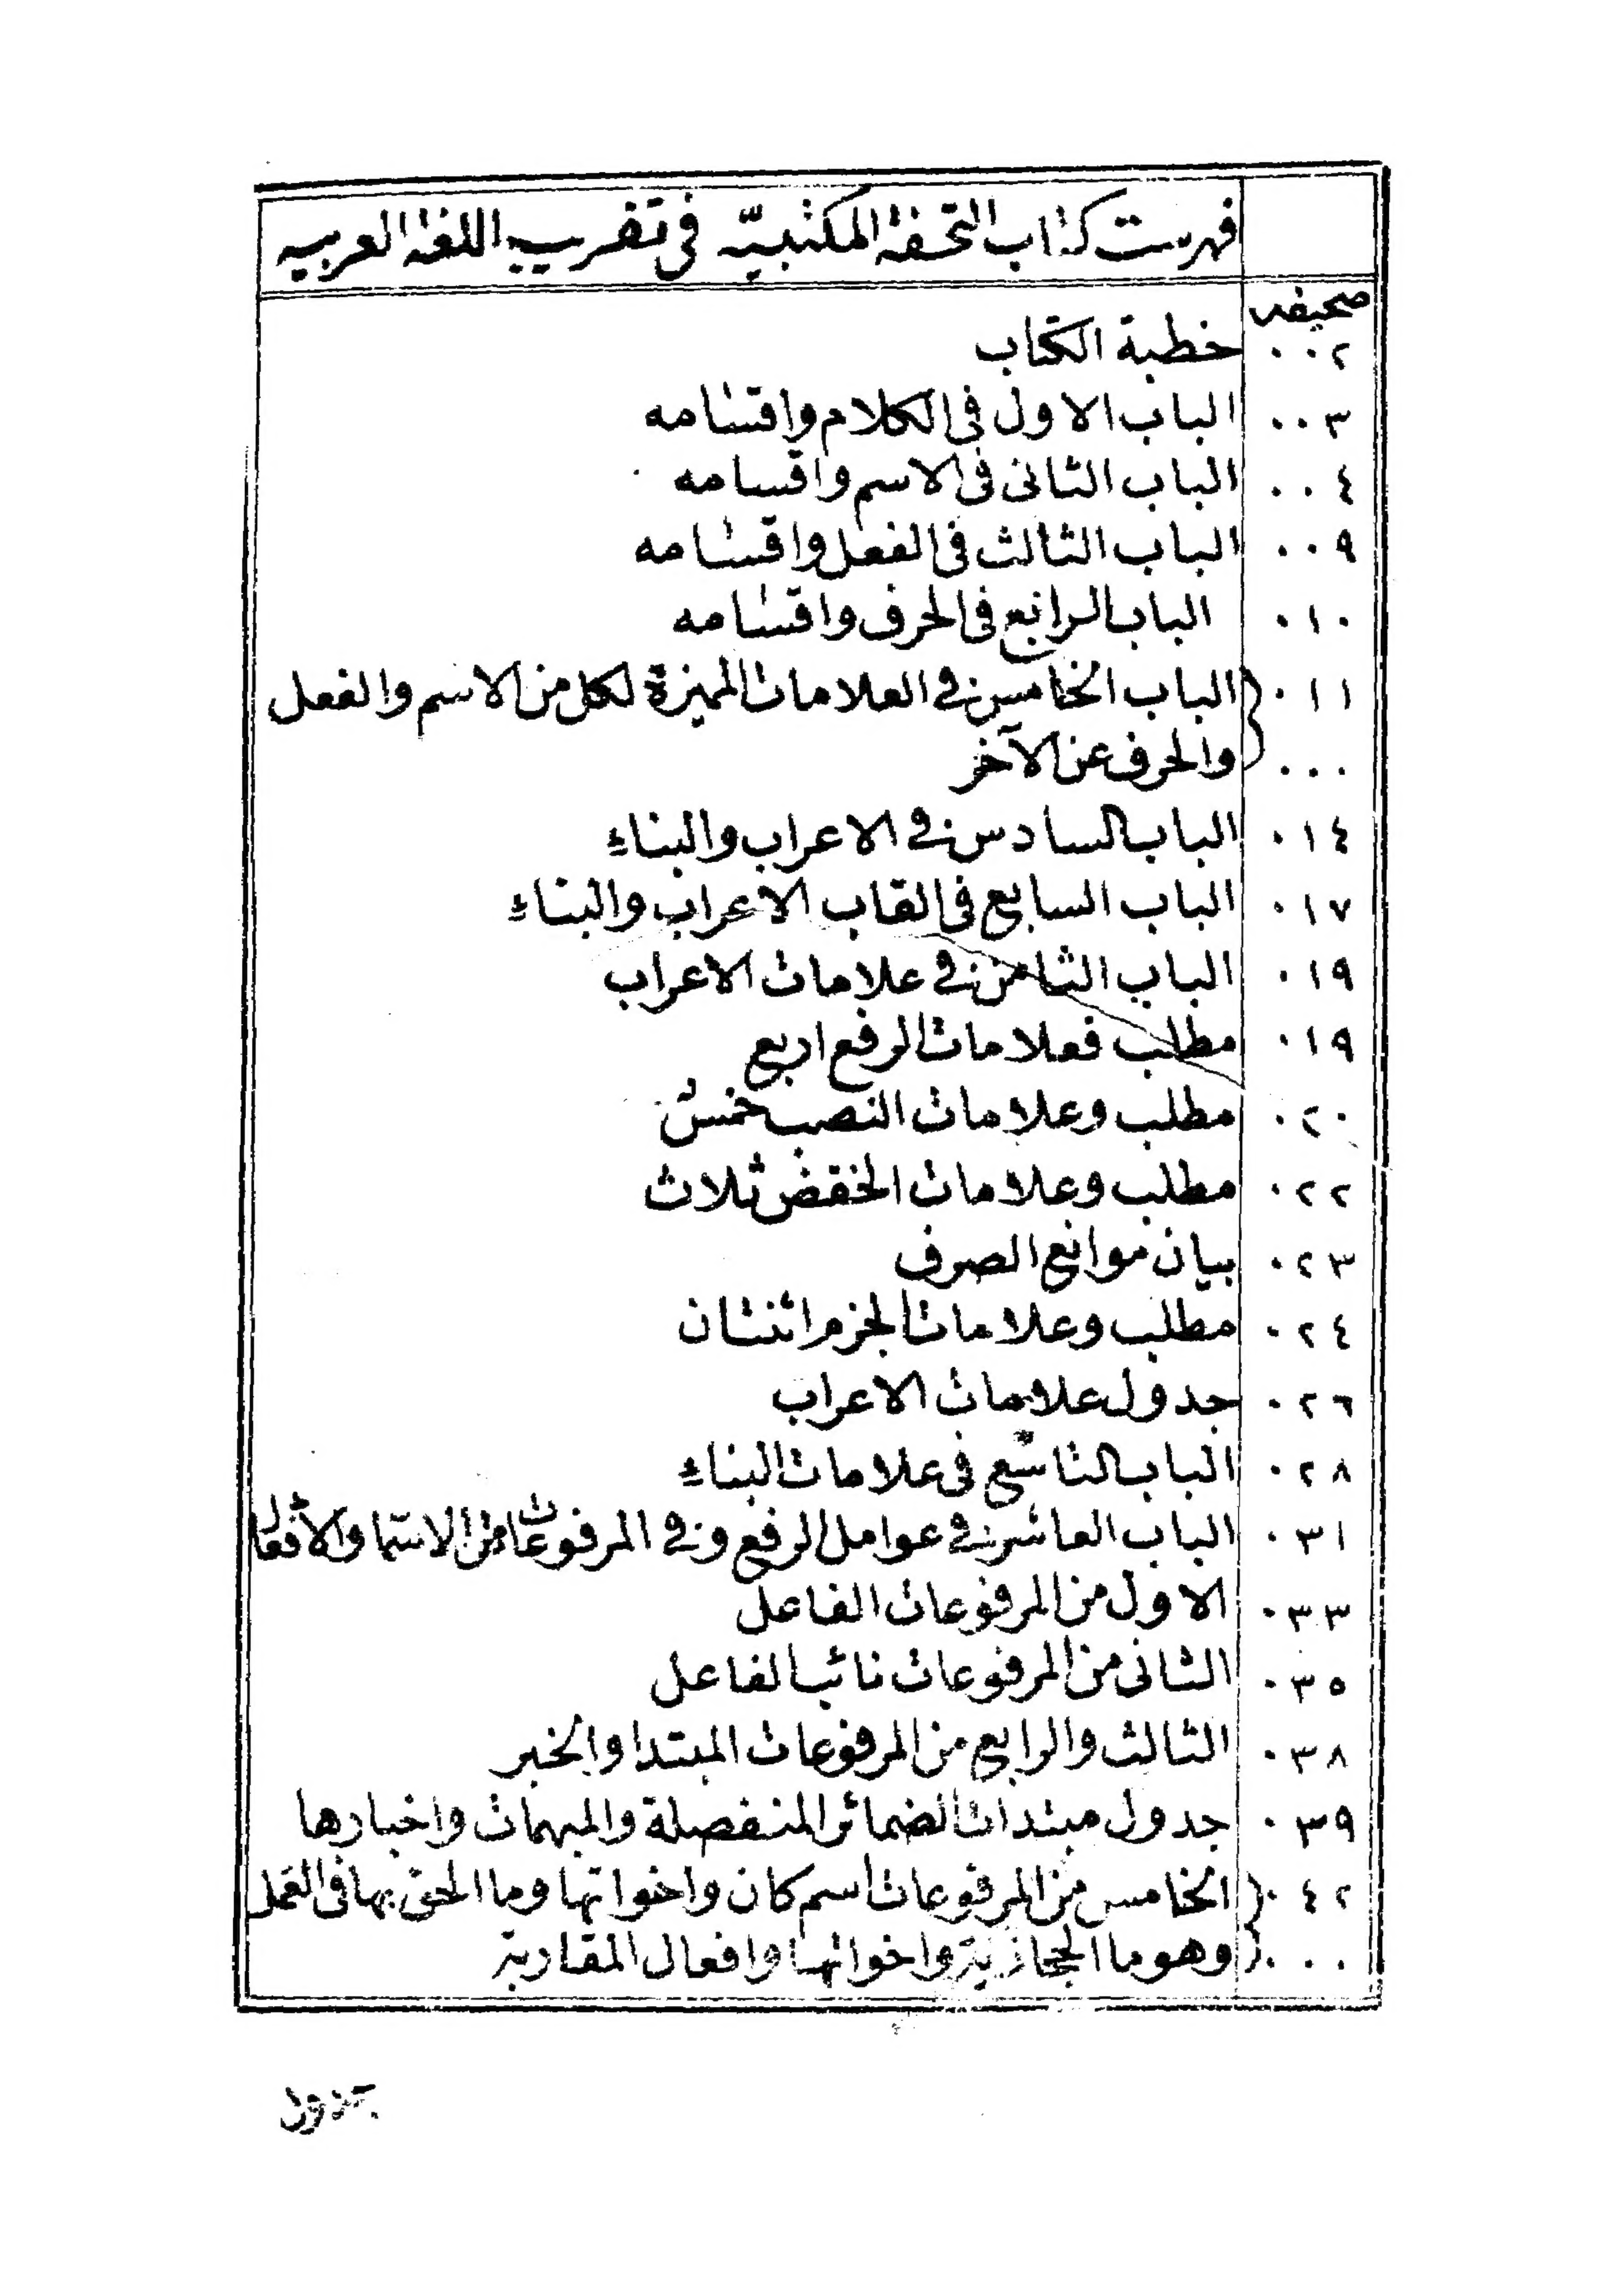 فهرست كتاب التحفة المكتبيّه في تقريب اللغة العربيه
صحيفه
٠٠٢ خطبة الكتاب
٠٠٣ الباب الاول في الكلام واقسامه
٠٠٤ الباب الثانى فى الاسم واقسامه
٠٠٩ الباب الثالث فى الفعل واقسامه
٠١٠ الباب الرابع فى الحرف واقسامه
٠١١ الباب الخامس في العلامات المميزة لكل من الاسم والفعل
٠٠٠ والحرف عن الآخر
٠١٤ الباب السادس في الاعراب والبناء
٠١٧ الباب السابع فى القاب الاعراب والبناء
٠١٩ الباب الثامن في علامات الاعراب
٠١٩ مطلب فعلامات الرفع اربع
٠٢٠ مطلب وعلامات النصب خمس
٠٢٢ مطلب وعلامات الخفض ثلاث
٠٢٣ بيان موانع الصرف
٠٢٤ مطلب وعلامات الجزم اثنتان
٠٢٦ جدول علامات الاعراب
٠٢٨ الباب التاسع فى علامات البناء
٠٣١ الباب العاشر في عوامل الرفع وفي المرفوعات من الاسما والافعال
٠٣٣ الاول من المرفوعات الفاعل
٠٣٥ الثانى من المرفوعات نائب الفاعل
٠٣٨ الثالث والرابع من المرفوعات المبتدا والخبر
٠٣٩ جدول مبتدات الضمائر المنفصلة والمبهمات واخبارها
٠٤٢ الخامس من المرفوعات اسم كان واخواتها وما الحق بها فى العمل
٠٠٠ وهو ما الحجازية واخواتها وافعال المقاربة
جدول